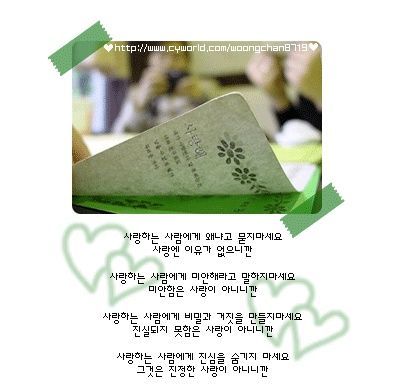 ♥http://www.cyworld.com/woongchan8719♥
사랑해
사랑하는 사람에게 왜냐고 묻지마세요
사랑엔 이유가 없으니깐
사랑하는 사람에게 미안해라고 말하지마세요
미안함은 사랑이 아니니깐
사랑하는 사람에게 비밀과 거짓을 만들지마세요
진실되지 못함은 사랑이 아니니깐
사랑하는 사람에게 진심을 숨기지 마세요
그것은 진정한 사랑이 아니니깐